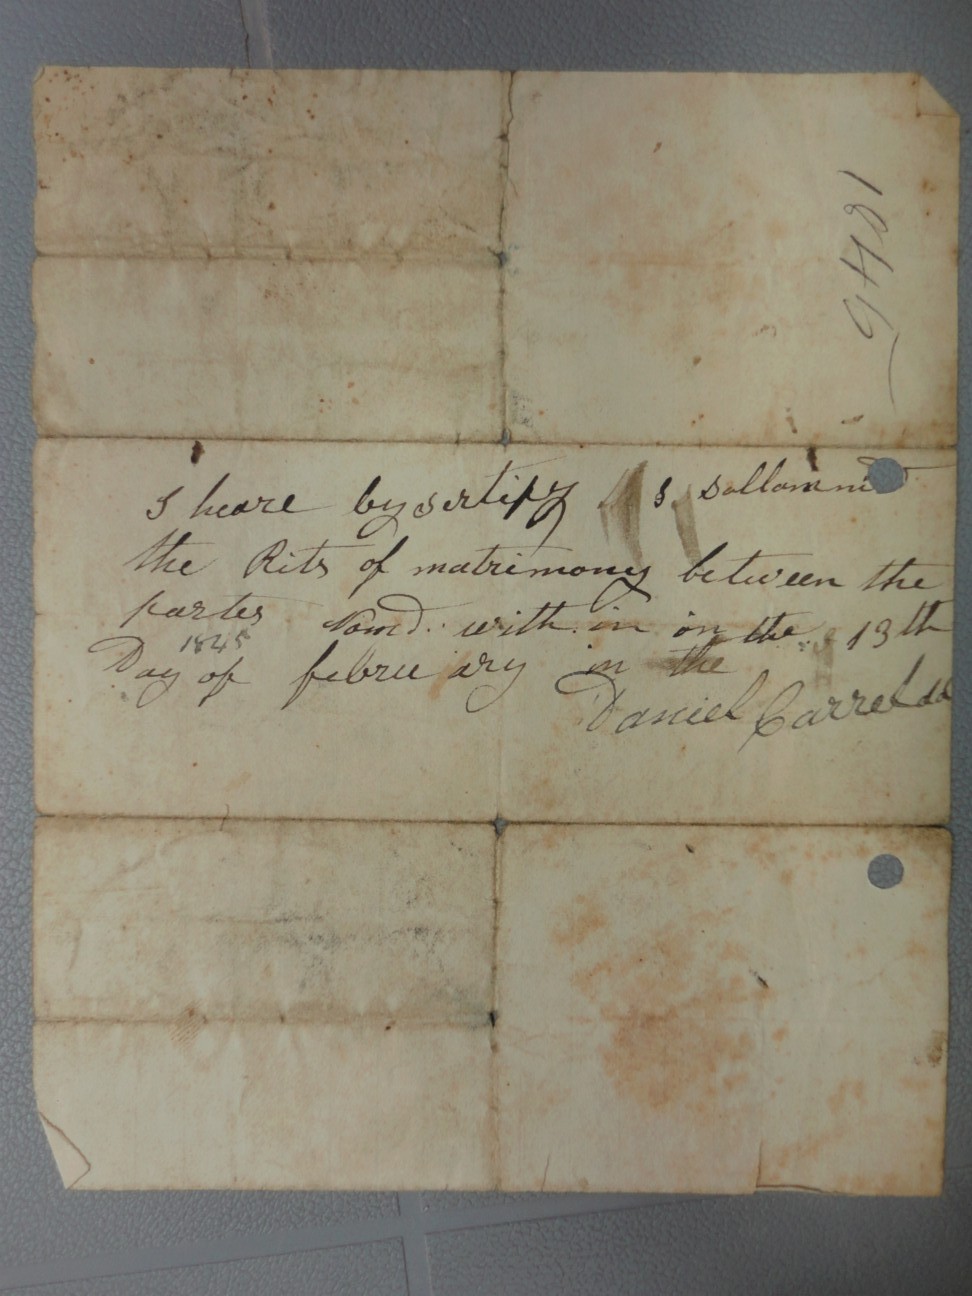 1846
I heare by sertify I sollamni
the Rits of matrimony between the
partes Namd. with in on the 13th
1845
Day of febru ary in the
Daniel Carrel